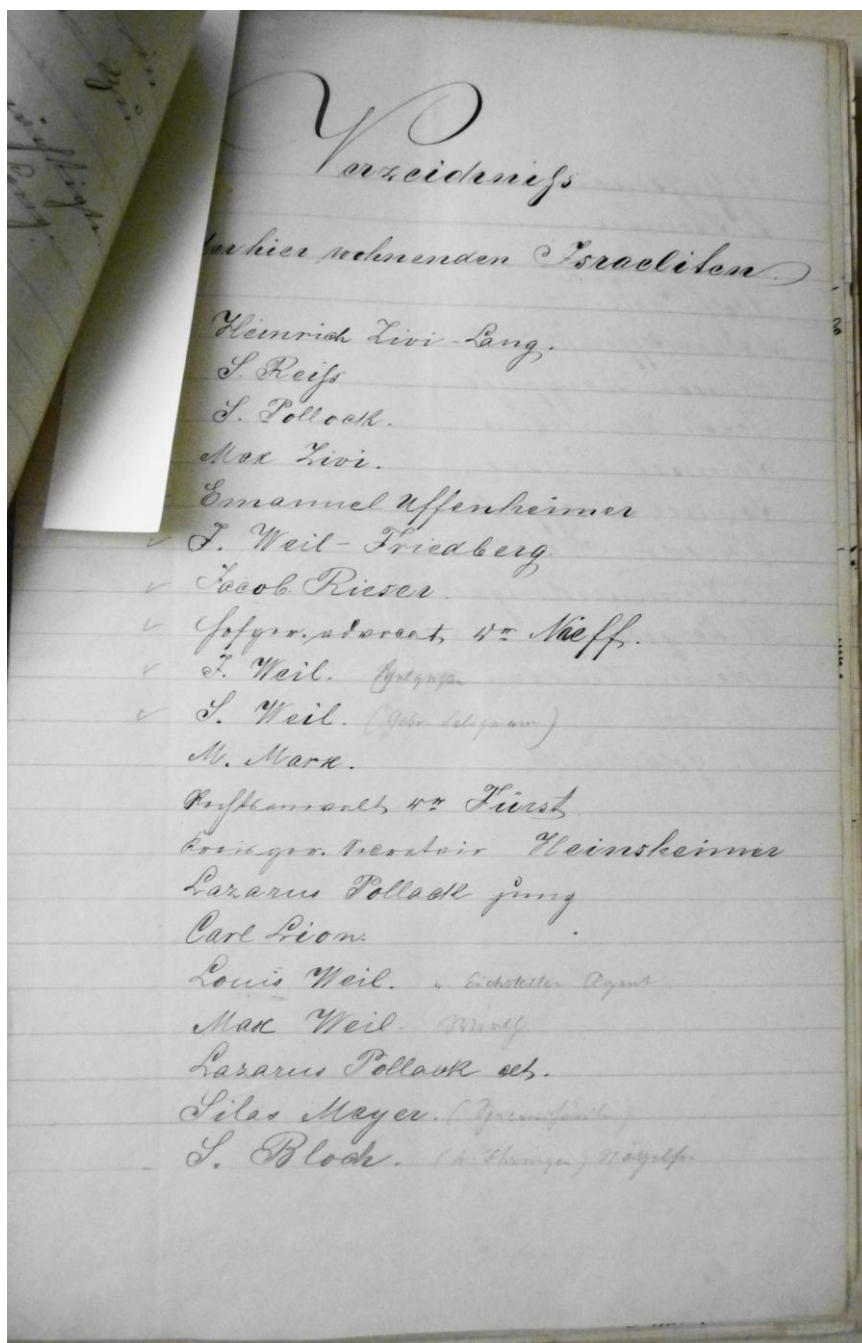 Verzeichniß
der hier wohnenden Israeliten.
Heinrich Zivi-Lang.
S. Reiß
S. Pollock.
Max Zivi.
Emanuel Uffenheimer
J. Weil-Friedberg.
Jacob Rieser.
Hofger. advocat Dr. Näff.
J. Weil.
S. Weil. (Gebr. Seligmann)
M. Marx.
Rechtsanwalt Dr. Fürst
Kreisger. Secretair Heinsheimer
Lazarus Pollack jung
Carl Lion.
Louis Weil. Eichstetter Agent
Max Weil.
Lazarus Pollack alt.
Silas Mayer.
S. Bloch. (v. Ihringen)